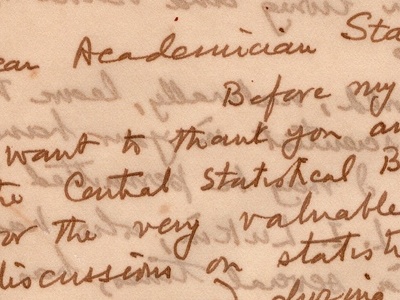 ear Academician Sta
Before my
want to thank you an
the Central Statistical B
or the very valuable
discussions on statisti
during